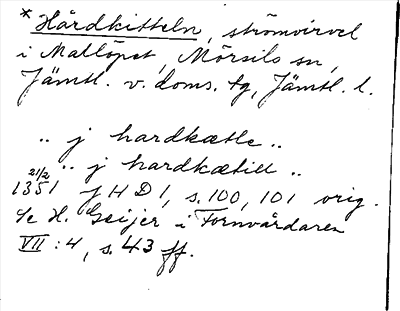 *Hårdkitteln, strömvirvel
i Mallöpet, Mörsils sn,
Jämtl. v. doms. tg, Jämtl. l.
.. j hardkætle ..
.. j hardkætill ..
1351 21/2 JHD1, s. 100, 101 orig.
Se H. Geijer i Fornvårdaren
VII:4, s. 43 ff.